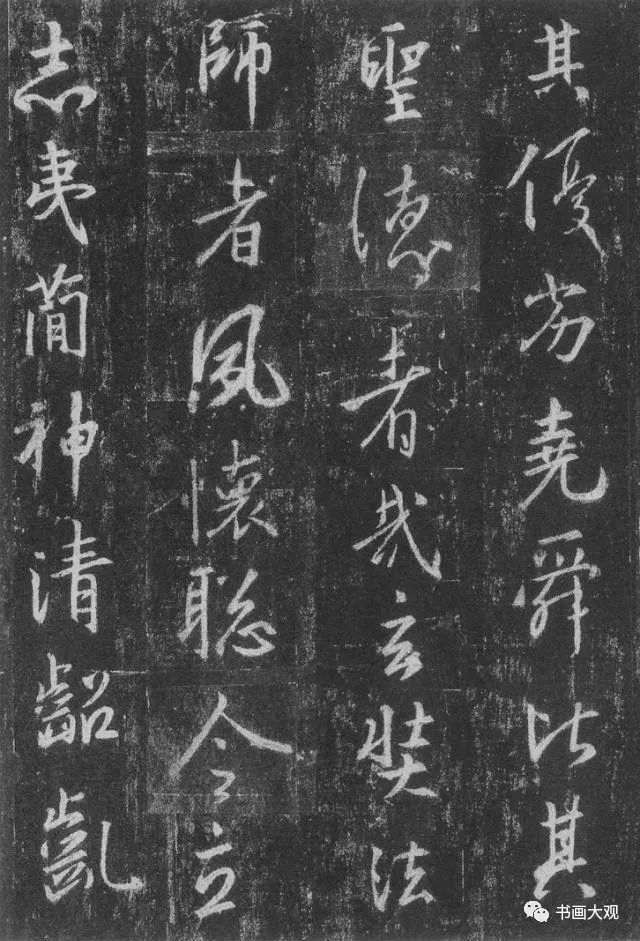 其優劣堯舜比其
聖德者哉玄奘法
師者夙懷聰令立
志夷簡神清齠齔
书画大观